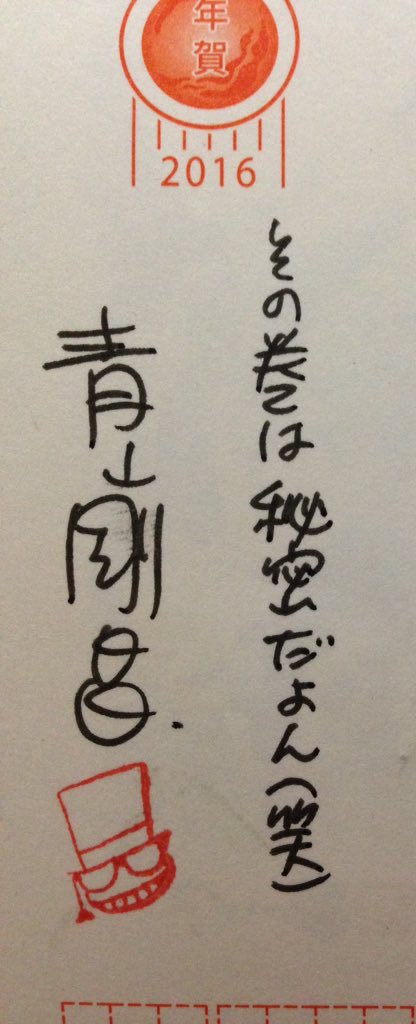 年賀
2016
その巻は秘密だよん(笑)
青山剛昌.